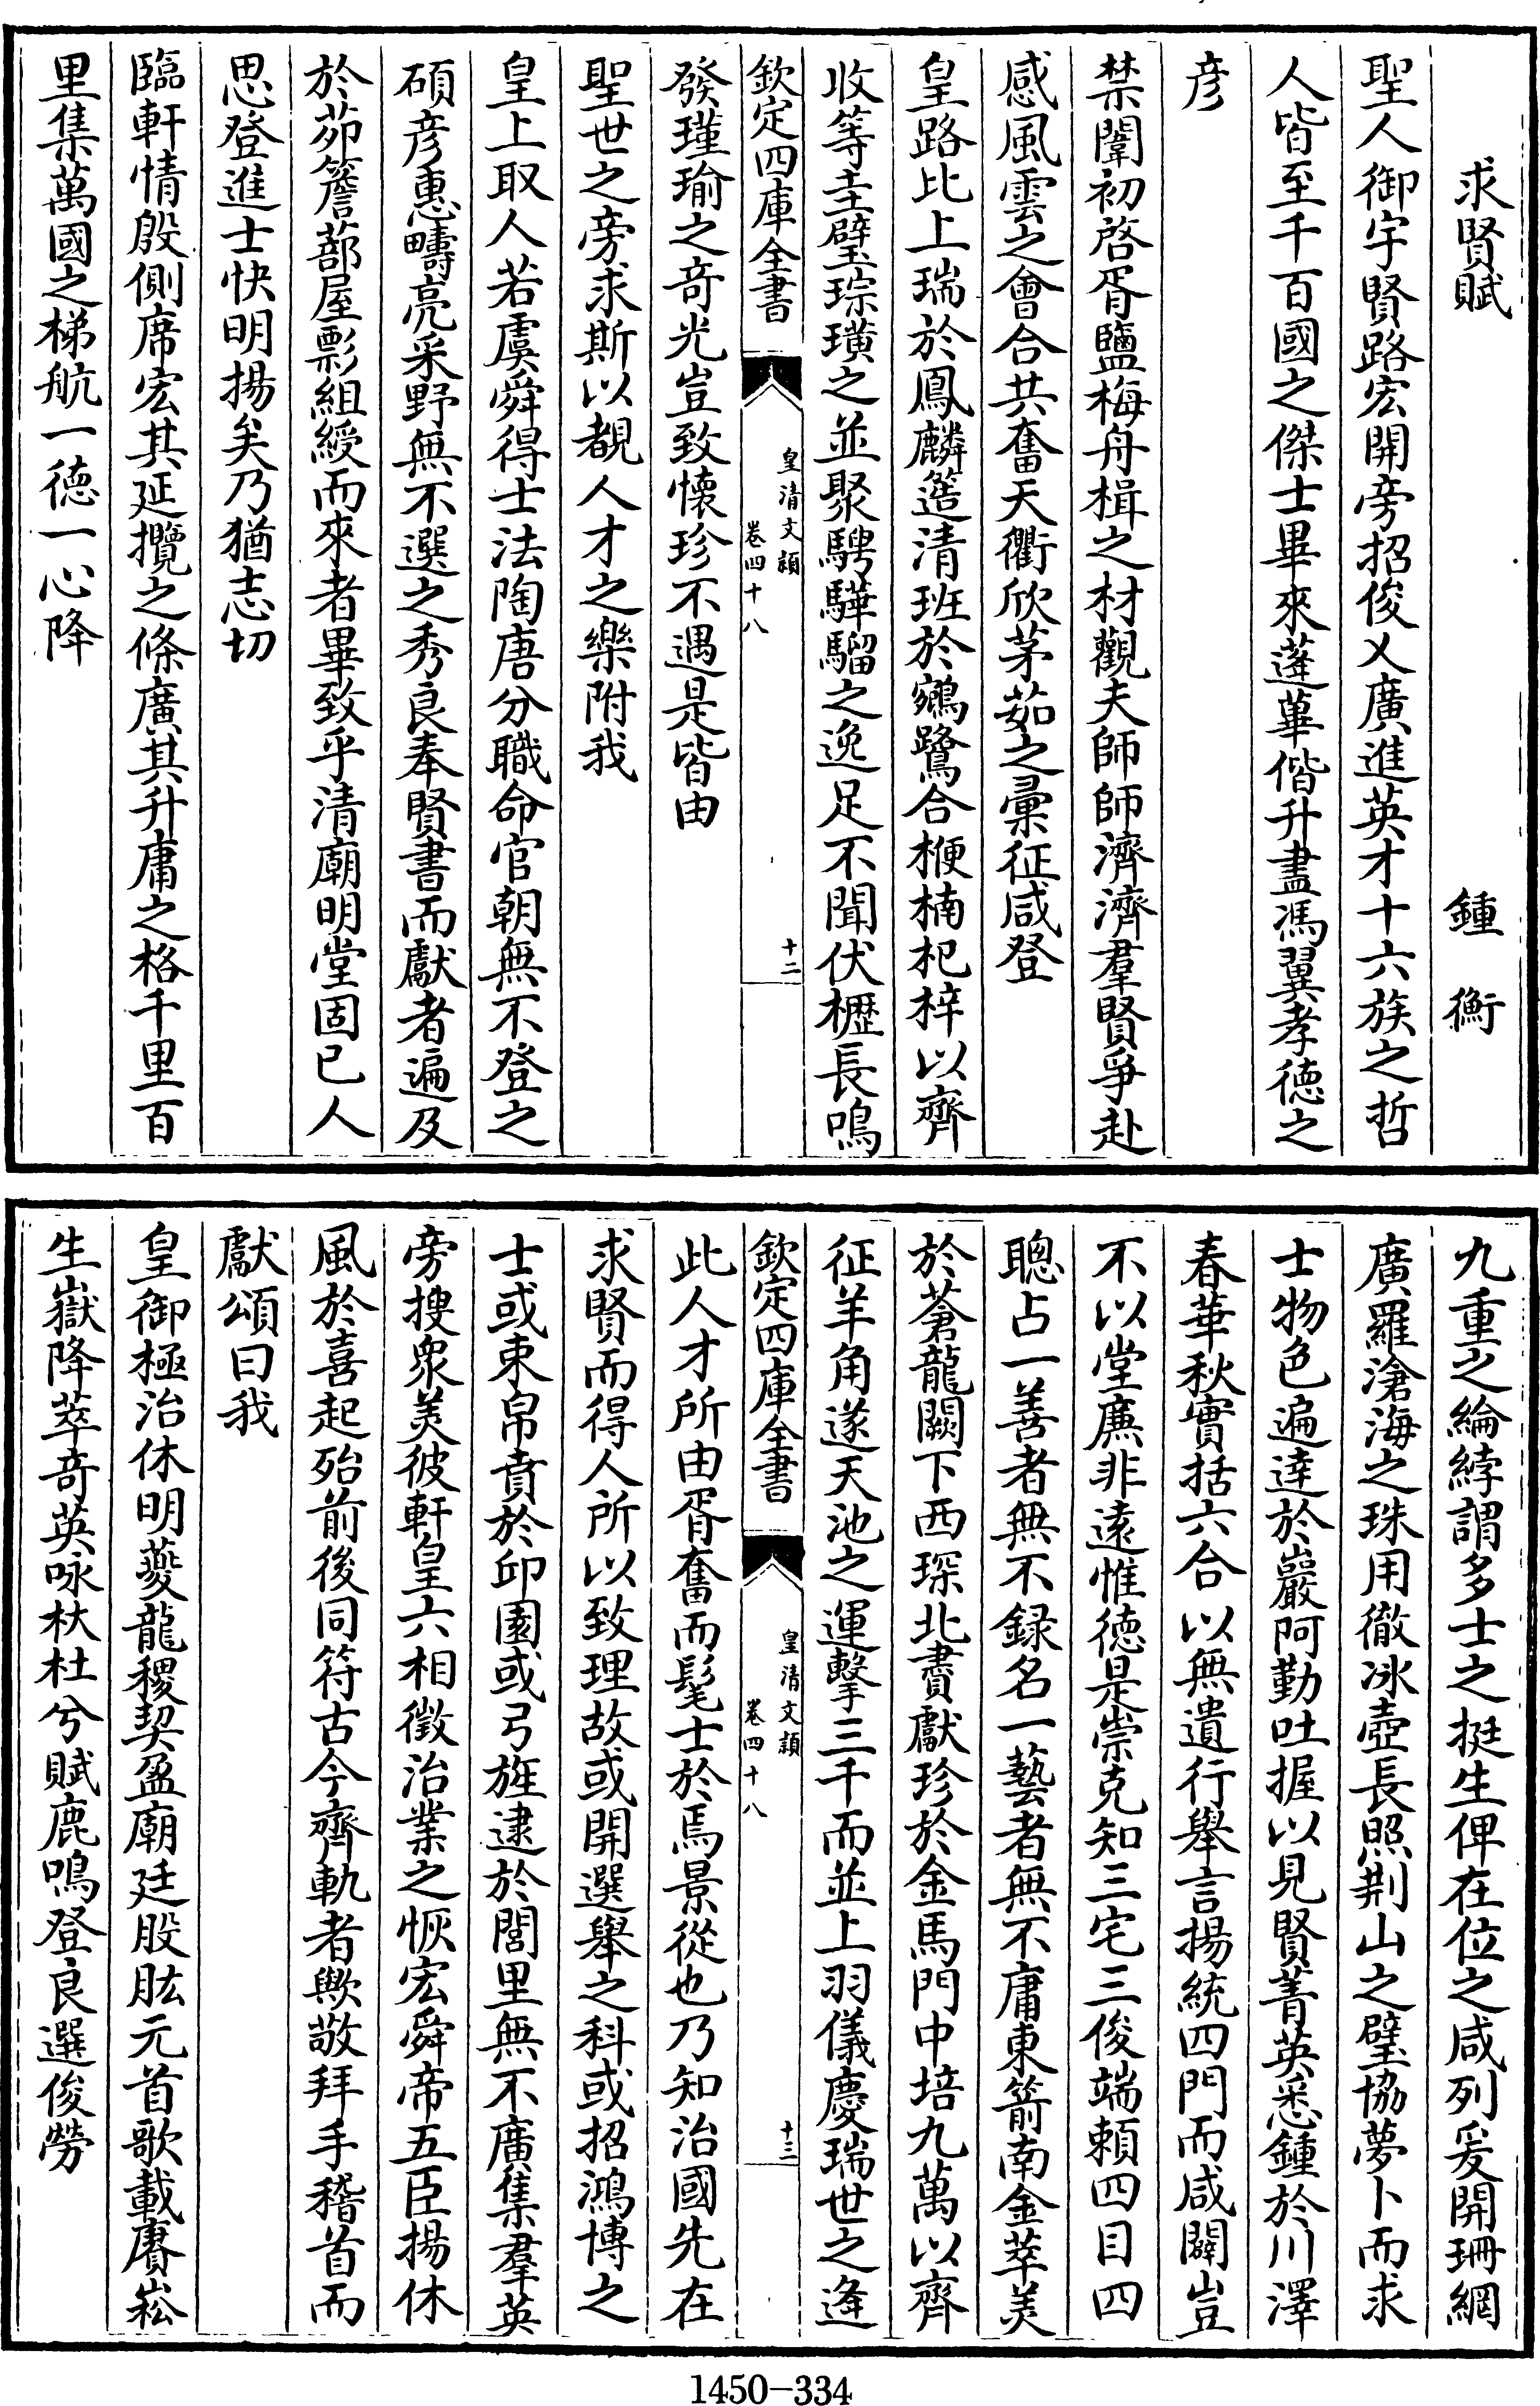 求賢賦　　　　鍾衡
聖人御宇賢路宏開旁招俊乂廣進英才十六族之哲
人皆至千百國之傑士畢來蓬蓽偕升盡馮翼孝德之
彦
禁闈初啓胥鹽梅舟楫之材觀夫師師濟濟羣賢爭赴
感風雲之會合共奮天衢欣茅茹之彙征咸登
皇路比上瑞於鳳麟簉清班於鵷鷺合楩楠杞梓以齊
收等圭璧琮璜之並聚騁驊騮之逸足不聞伏櫪長鳴
欽定四庫全書
皇清文頴
卷四十八
十二
發瑾瑜之竒光豈致懐珍不遇是皆由
聖世之旁求斯以覩人才之樂附我
皇上取人若虞舜得士法陶唐分職命官朝無不登之
碩彦惠疇亮采野無不選之秀良奉賢書而獻者遍及
於茆簷蔀屋影組綬而來者畢致乎清廟明堂固已人
思登進士快明揚矣乃猶志切
臨軒情殷側席宏其延攬之條廣其升庸之格千里百
里集萬國之梯航一德一心降
九重之綸綍謂多士之挺生俾在位之咸列爰開珊網
廣羅滄海之珠用徹冰壺長照荆山之璧協夢卜而求
士物色遍逹於巖阿勤吐握以見賢菁英悉鍾於川澤
春華秋實括六合以無遺行舉言揚統四門而咸闢豈
不以堂亷非遠惟德是崇克知三宅三俊端賴四目四
聰占一善者無不録名一藝者無不庸東箭南金萃美
於蒼龍闕下西琛北賮獻珍於金馬門中培九萬以齊
征羊角遂天池之運擊三千而並上羽儀慶瑞世之逢
欽定四庫全書
皇清文頴
卷四十八
十三
此人才所由胥奮而髦士於焉景從也乃知治國先在
求賢而得人所以致理故或開選舉之科或招鴻博之
士或束帛賁於邱園或弓旌逮於閭里無不廣集羣英
旁搜衆美彼軒皇六相徵治業之恢宏舜帝五臣揚休
風於喜起殆前後同符古今齊軌者歟敬拜手稽首而
獻頌曰我
皇御極治休明夔龍稷契盈廟廷股肱元首歌載賡崧
生嶽降萃竒英咏杕杜兮賦鹿鳴登良選俊勞
1450-334